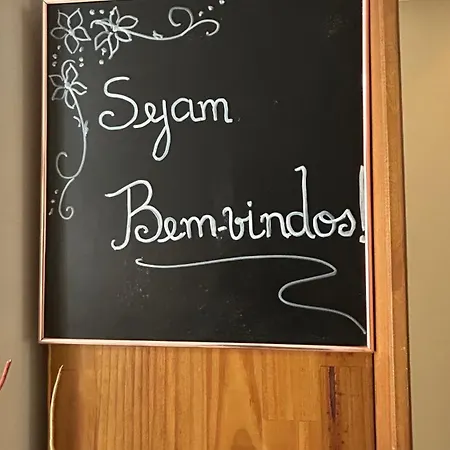 Sejam
Bem-vindos!